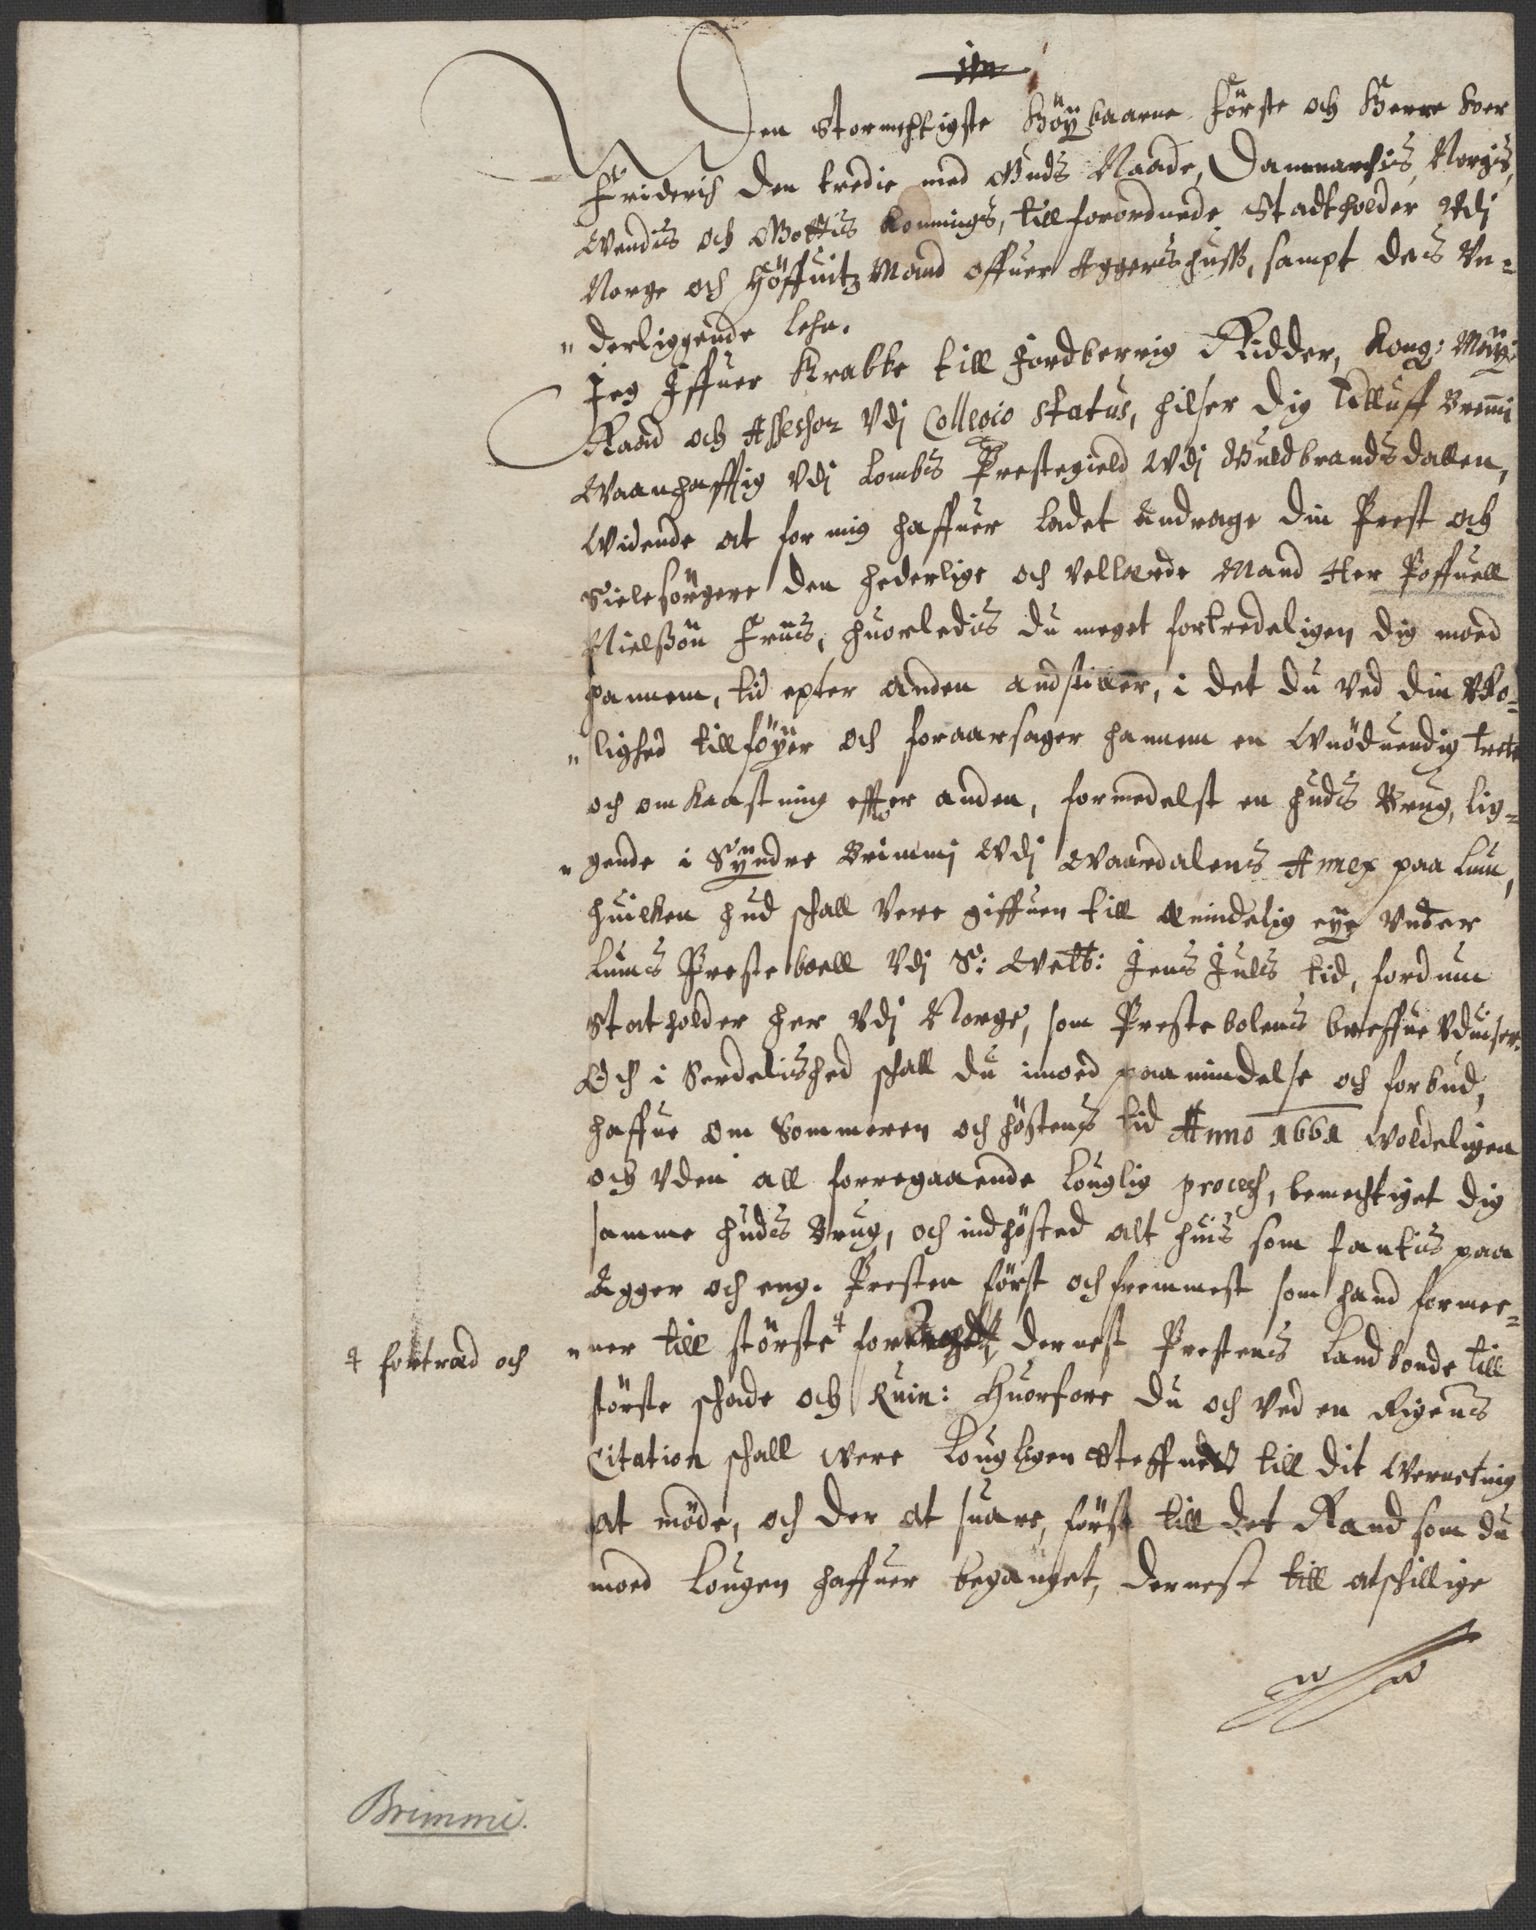 Den Stormechtigste Höÿbaarne Förste och Herre Herr
Friderich den tredie med Guds Naade, Danmarchis, Norgis,
Wendis och Gottis Konnings, tillforordnede Stadtholder Vdj
Norge och Höffuitz Mand offuer Aggershuss, sampt des Vn=
" derliggende Lehn.
Jeg Iffuer Krabbe till Jordberrig Ridder, Kong: Maÿ:
Raad och Assessor Vdj Collegio Status, hilser dig Tolluff Brimmi
Waanhafftig Vdj Lombs Prestegield Wdj Guldbrandsdallen,
Widende at for mig haffuer ladet andrage din Prest och
Sielesörgere den hederlige och Vellærde Mand Her Poffuell
Nielssön Friis, huorledis du meget fortredeligen dig moed
hannem, tid epter anden andstiller, i det du ved din Vro=
" lighed tillföÿer och foraarsager hannem en Wnöduendig trete
och omkaastning effter anden, formedelst en huds Brug, lig=
" gende i Sÿndre Brimmj Wdj Waardalens Annex paa Lum,
huilken hud schall Vere giffuen till Euindelig eÿe Vnder
Lums Prestebooll Vdj S: Welb: Jens Juls tid, fordum
Statholder her Vdj Norge, som Prestebolens breffue Vduiser.
Och i Serdelished schall du imoed paamindelse och forbud,
haffue om Sommeren och höstens tid Anno 1661 Woldeligen
och Vden all forregaaende Louglig process, bemechtiget dig
samme huds Brug, och indhösted alt huis som fantis paa
Agger och eng. Presten först och fremmest som hand formee=
" ner till störste ⸸ foragt, dernest Prestens Landbonde till
⸸ fortræd och
störste schade och Ruin: Huorfore du och ved en Rigens
Citation schall were Lougligen Steffnet till dit Werneting
at möde, och der at suare, först till det Rand som du
moed Lougen haffuer beganget, dernest till atschillige
Brimmi.